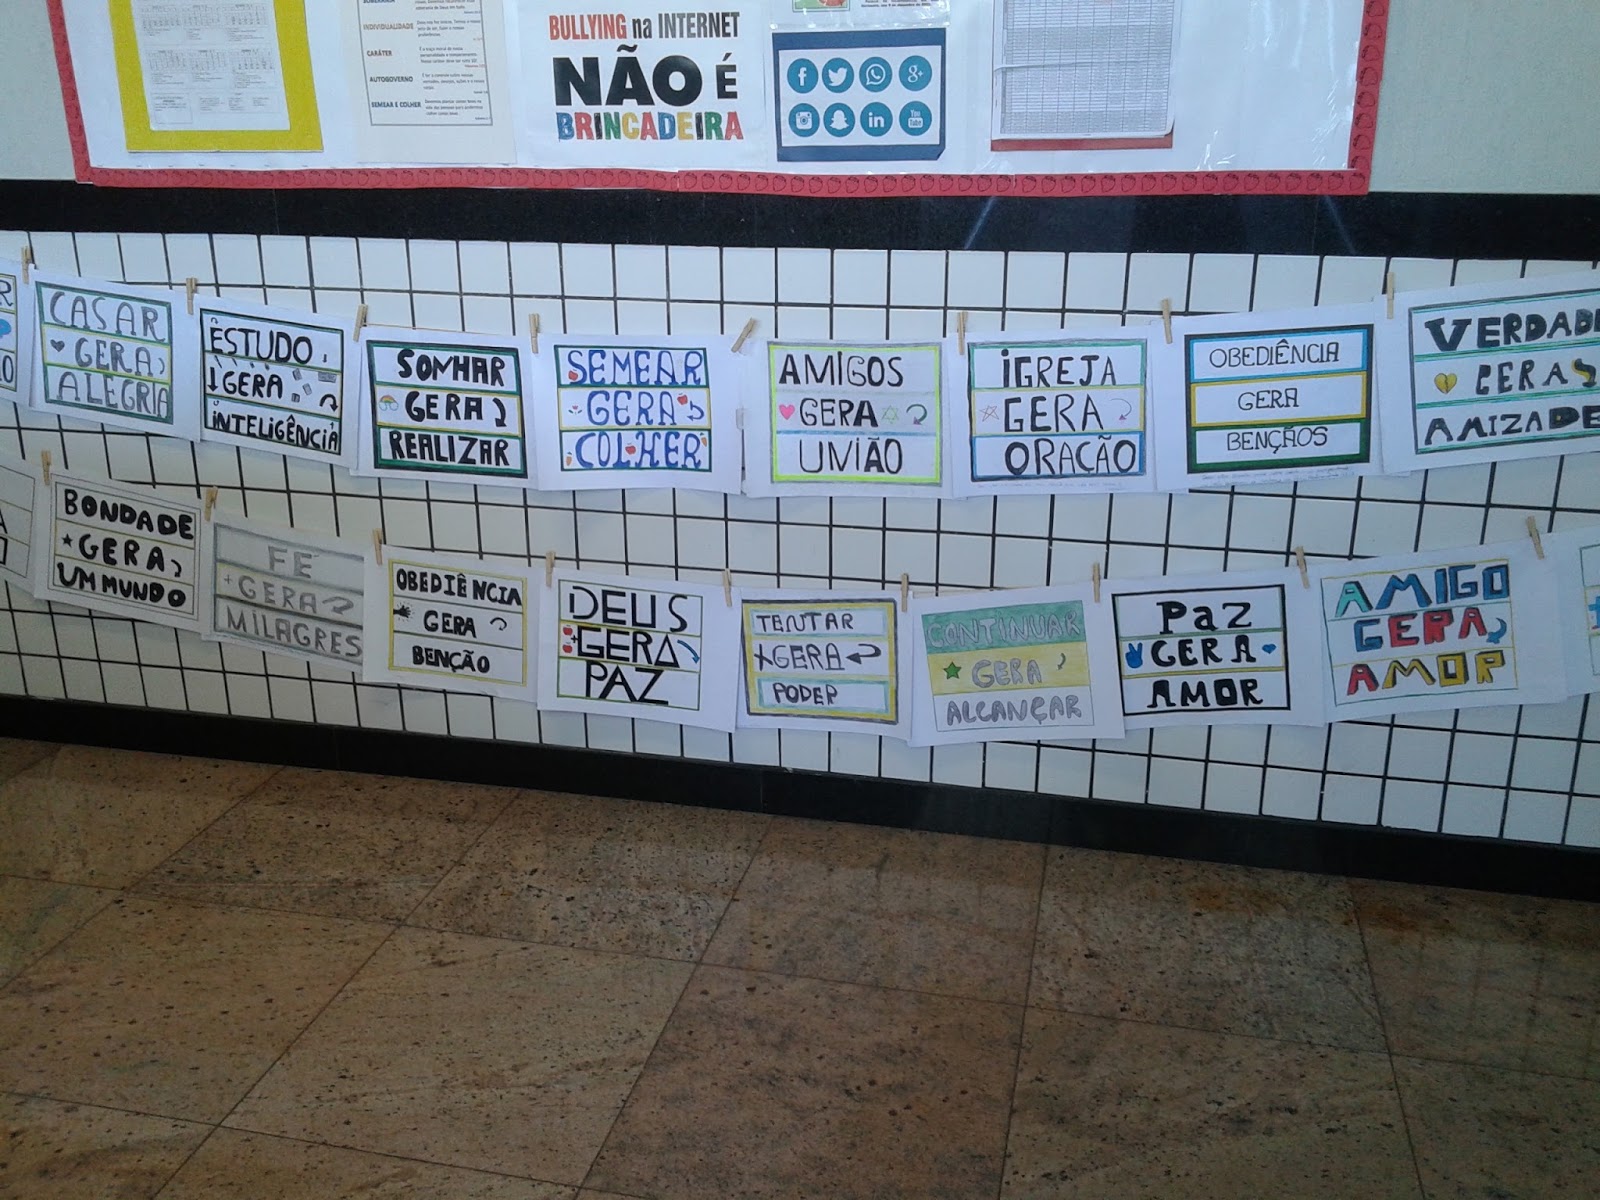 SOBERANIA
INDIVIDUALIDADE
CARÁTER
AUTOGOVERNO
SEMEAR E COLHER
BULLYING na INTERNET
NÃO É
BRINCADEIRA
g+
in
You
Tube
R
CASAR
GERA
ALEGRIA
ESTUDO
GERA
INTELIGÊNCIA
SONHAR
GERA
REALIZAR
SEMEAR
GERA
COLHER
AMIGOS
GERA
UNIÃO
IGREJA
GERA
ORAÇÃO
OBEDIÊNCIA
GERA
BENÇÃOS
VERDADE
GERA
AMIZADE
BONDADE
GERA
UM MUNDO
FÉ
GERA
MILAGRES
OBEDIÊNCIA
GERA
BENÇÃO
DEUS
GERA
PAZ
TENTAR
GERA
PODER
CONTINUAR
GERA
ALCANÇAR
PAZ
GERA
AMOR
AMIGO
GERA
AMOR